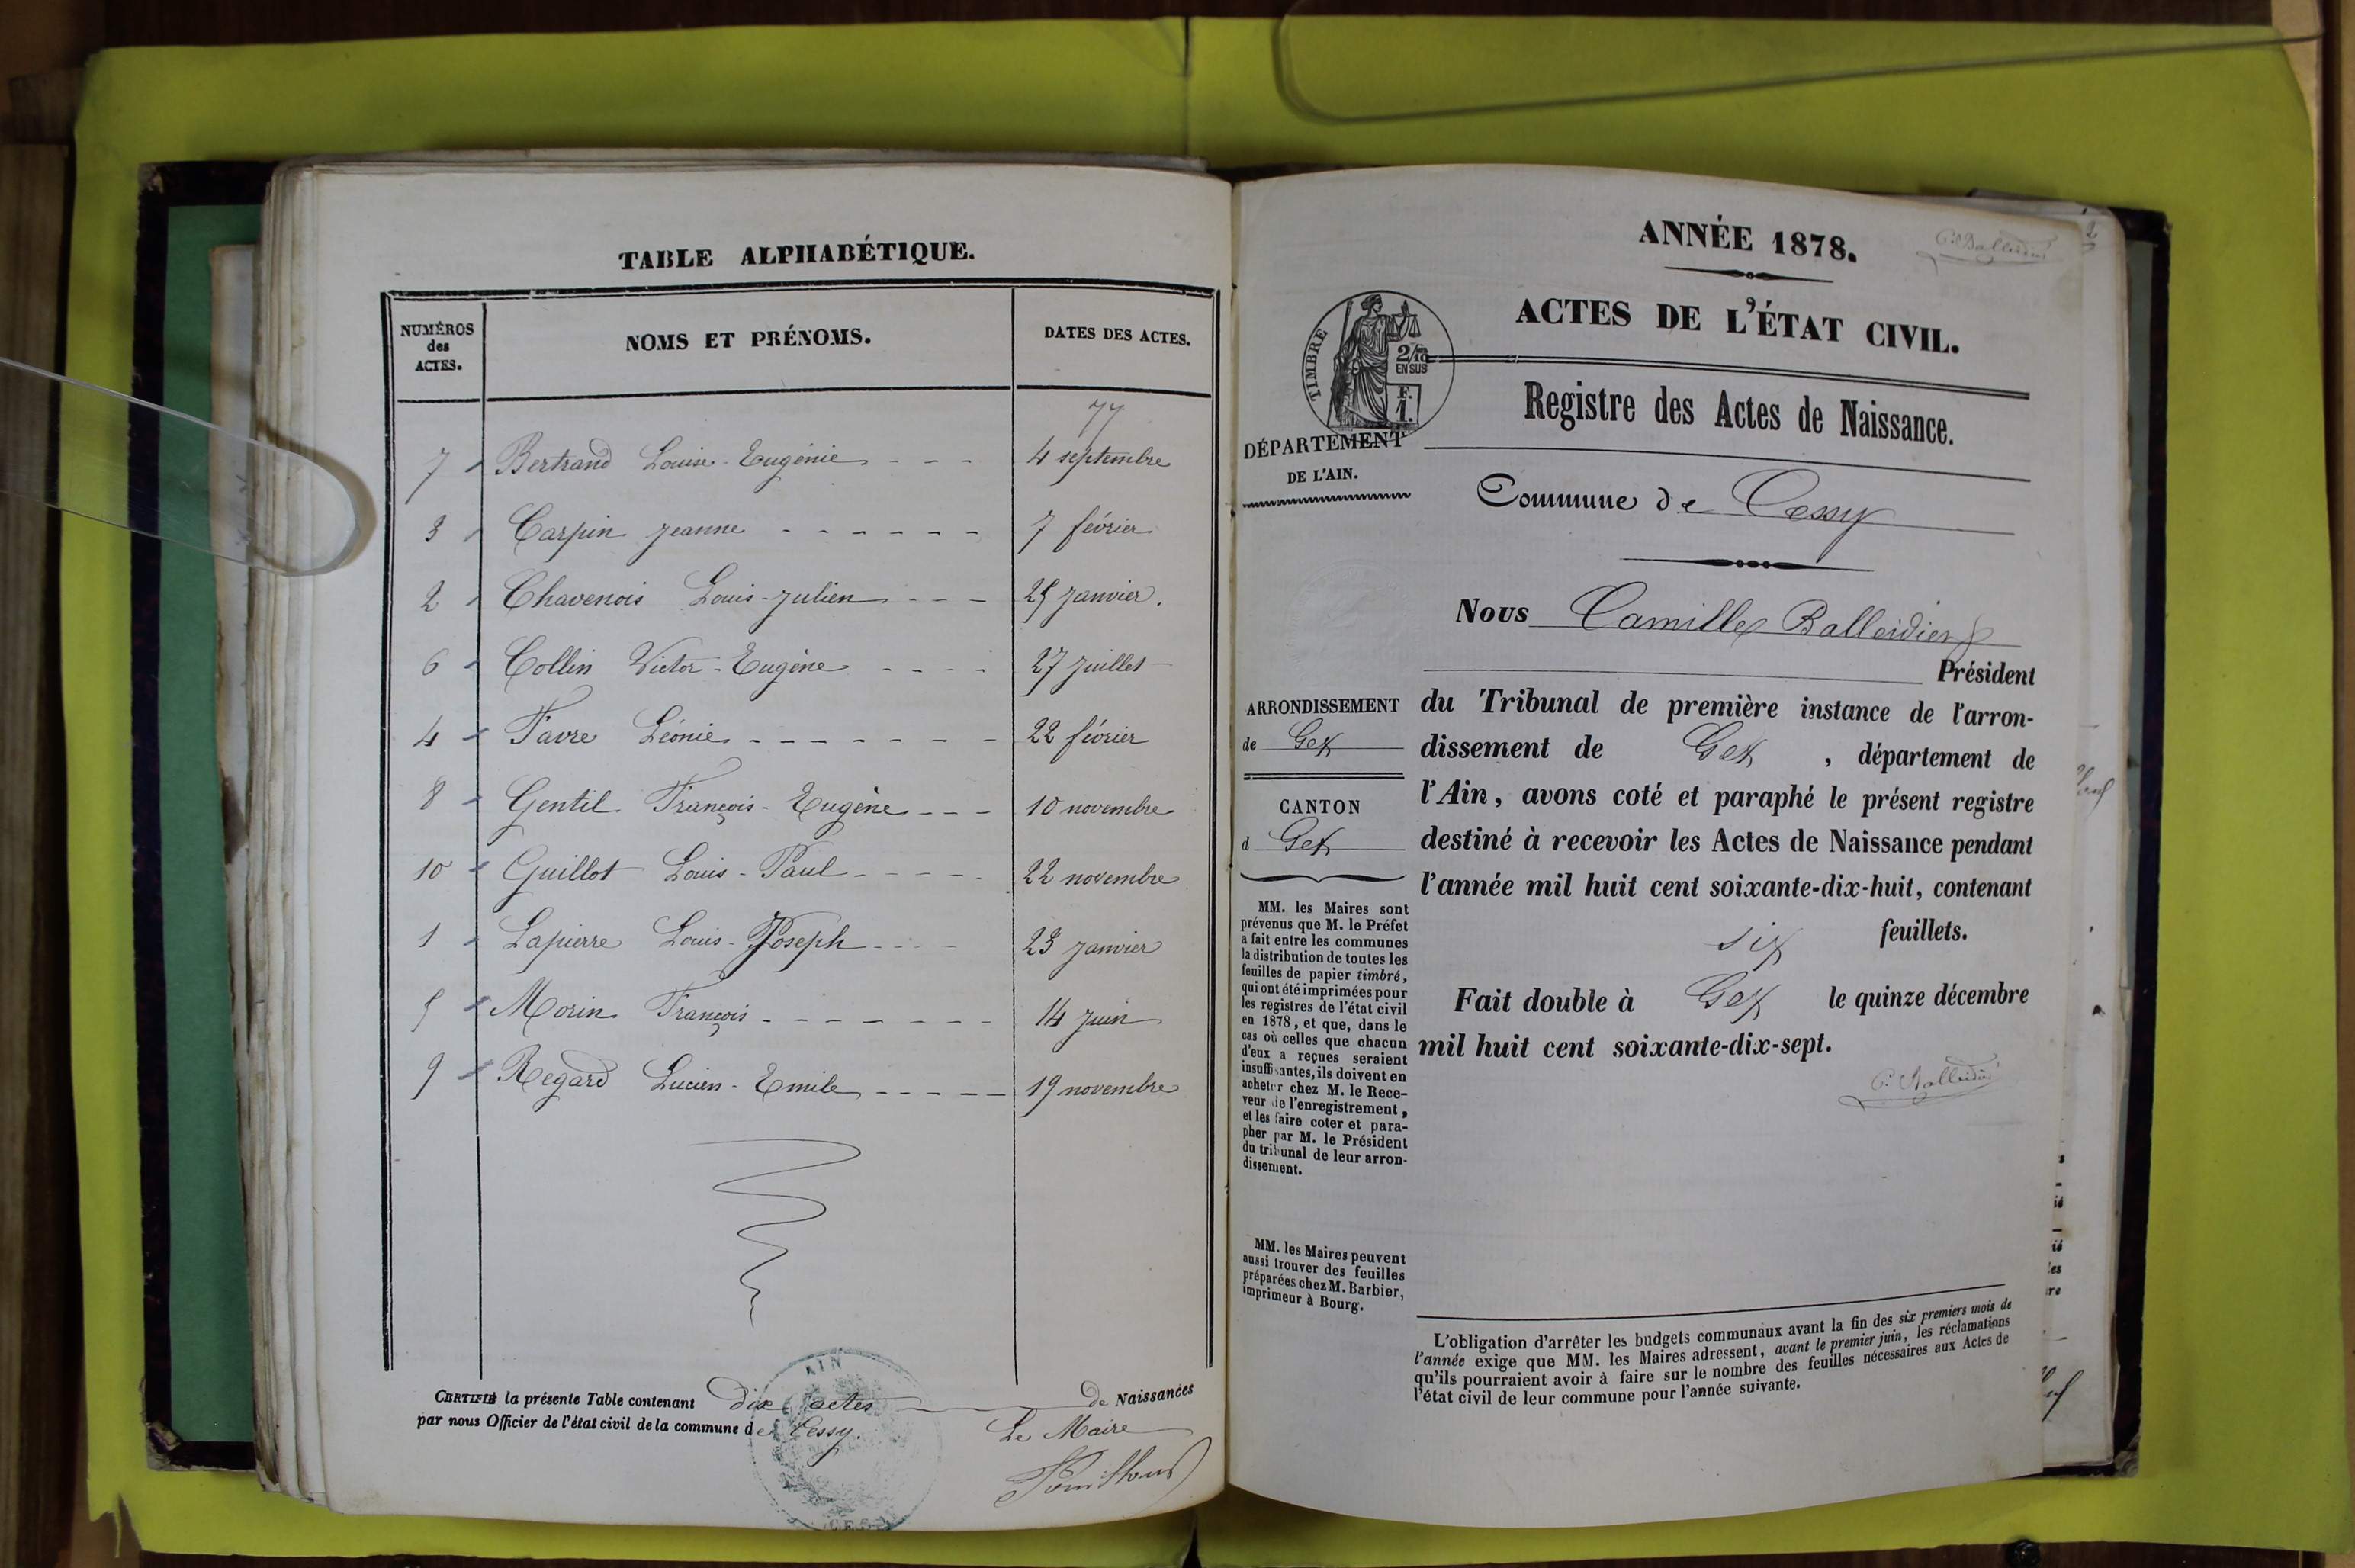 TABLE ALPHABÉTIQUE.
NUMÉROS
des
ACTES.
NOMS ET PRÉNOMS.
DATES DES ACTES.
77
7 Bertrand Louise-Eugénie 4 septembre
3 Carpin Jeanne 7 février
2 Chavenois Louis-Julien 25 janvier.
6 Collin Victor-Eugène 27 juillet
4 Favre Léonie 22 février
8 Gentil François-Eugène 10 novembre
10 Guillot Louis-Paul 22 novembre
1 Lapierre Louis-Joseph 23 janvier
5 Morin François 14 juin
9 Regard Lucien-Emile 19 novembre
CERTIFIÉ la présente Table contenant dix actes de Naissances
par nous Officier de l'état civil de la commune de Cessy.
Le Maire
AIN
ANNÉE 1878.
C. Balleidier
ACTES DE L'ÉTAT CIVIL.
TIMBRE
2/10
EN SUS
F.
1.
Registre des Actes de Naissance.
DÉPARTEMENT
DE L'AIN.
Commune de Cessy
Nous Camille Balleidier
Président
du Tribunal de première instance de l'arron-
dissement de Gex, département de
l'Ain, avons coté et paraphé le présent registre
destiné à recevoir les Actes de Naissance pendant
l'année mil huit cent soixante-dix-huit, contenant
six feuillets.
Fait double à Gex le quinze décembre
mil huit cent soixante-dix-sept.
C. Balleidier
ARRONDISSEMENT
de Gex
CANTON
d Gex
MM. les Maires sont
prévenus que M. le Préfet
a fait entre les communes
la distribution de toutes les
feuilles de papier timbré,
qui ont été imprimées pour
les registres de l'état civil
en 1878, et que, dans le
cas où celles que chacun
d'eux a reçues seraient
insuffisantes, ils doivent en
acheter chez M. le Rece-
veur de l'enregistrement,
et les faire coter et para-
pher par M. le Président
du tribunal de leur arron-
dissement.
MM. les Maires peuvent
aussi trouver des feuilles
préparées chez M. Barbier,
imprimeur à Bourg.
L'obligation d'arrêter les budgets communaux avant la fin des six premiers mois de
l'année exige que MM. les Maires adressent, avant le premier juin, les réclamations
qu'ils pourraient avoir à faire sur le nombre des feuilles nécessaires aux Actes de
l'état civil de leur commune pour l'année suivante.